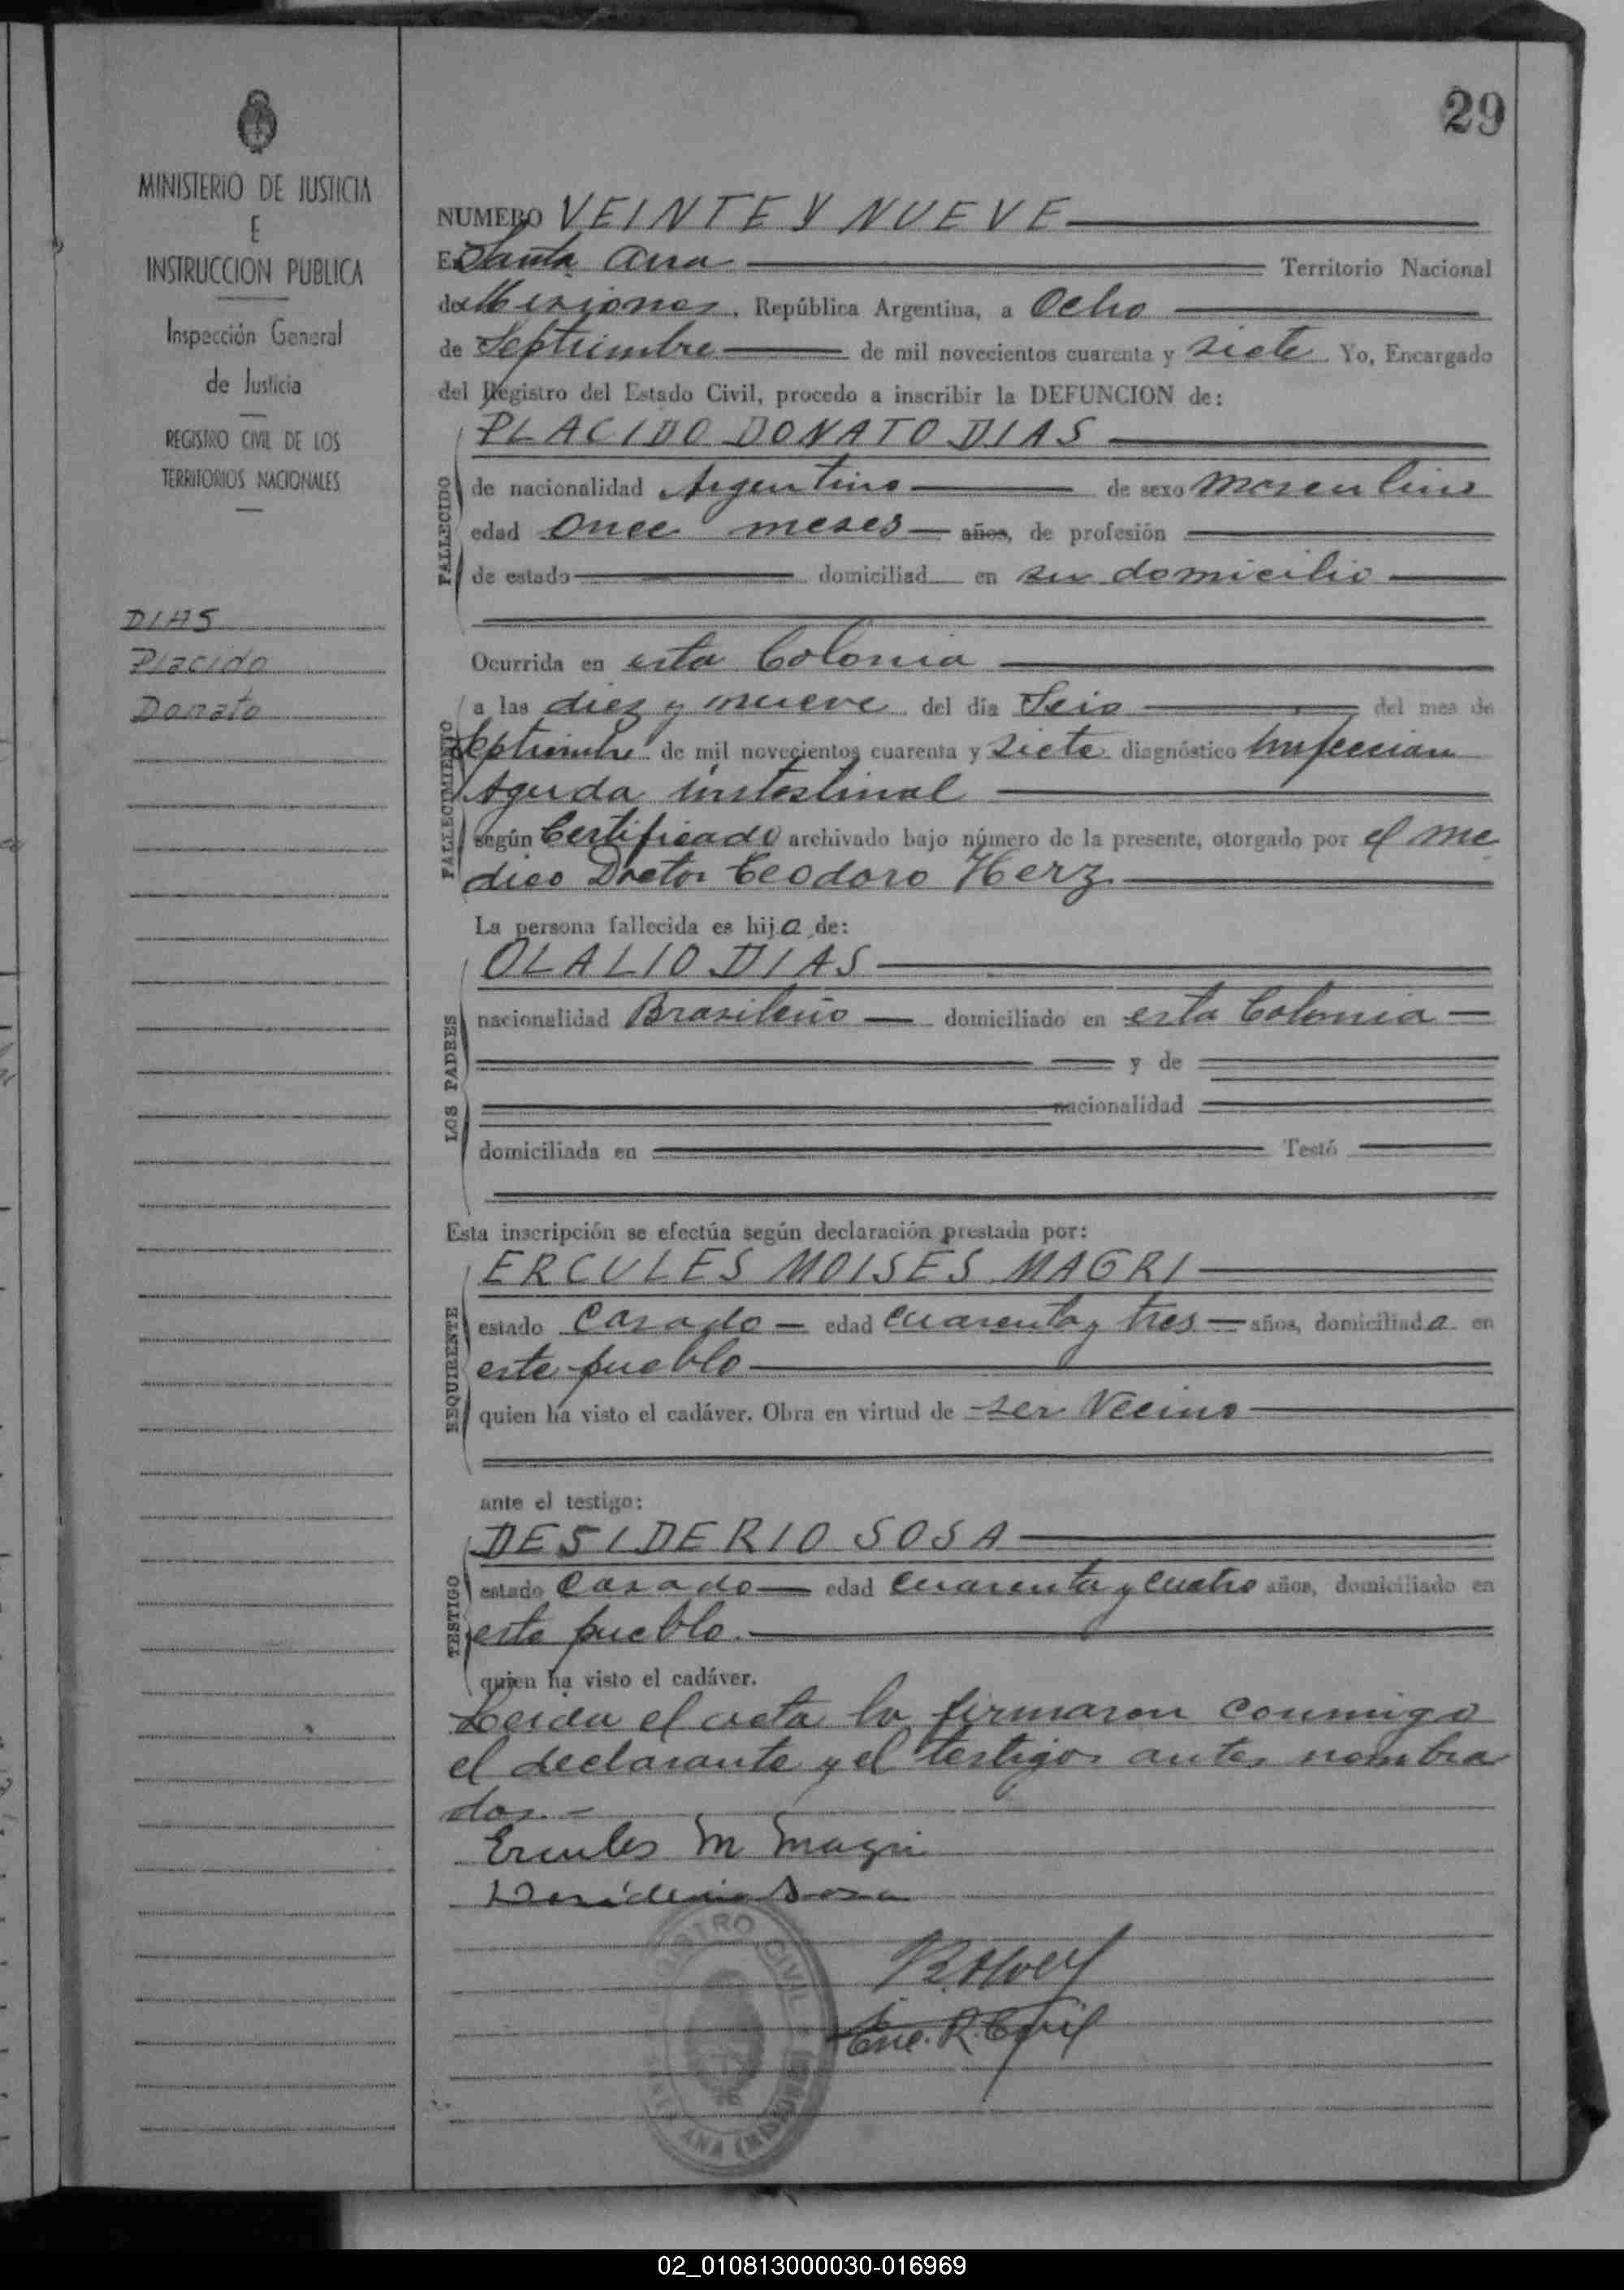 29
MINISTERIO DE JUSTICIA
E
INSTRUCCION PUBLICA
Inspección General
de Justicia
REGISTRO CIVIL DE LOS
TERRITORIOS NACIONALES
DIAS
Placido
Donato
NUMERO VEINTE Y NUEVE
En Santa Ana Territorio Nacional
de Misiones, República Argentina, a Ocho
de Septiembre de mil novecientos cuarenta y siete Yo, Encargado
del Registro del Estado Civil, procedo a inscribir la DEFUNCION de:
PLACIDO DONATO DIAS
FALLECIDO
de nacionalidad Argentino de sexo Masculino
edad Once meses años, de profesión
de estado domiciliad en su domicilio
Ocurrida en esta Colonia
FALLECIMIENTO
a las diez y nueve del día Seis del mes de
Septiembre de mil novecientos cuarenta y siete diagnóstico Infeccion
Aguda intestinal
según Certificado archivado bajo número de la presente, otorgado por el me
dico Doctor Teodoro Herz
La persona fallecida es hija de:
LOS PADRES
OLALIO DIAS
nacionalidad Brasileño domiciliado en esta Colonia
y de
nacionalidad
domiciliada en Testó
Esta inscripción se efectúa según declaración prestada por:
REQUIRENTE
ERCULES MOISES MAGRI
estado Casado edad cuarenta y tres años, domiciliada en
este pueblo
quien ha visto el cadáver. Obra en virtud de ser Vecino
ante el testigo:
TESTIGO
DESIDERIO SOSA
estado Casado edad cuarenta y cuatro años, domiciliado en
este pueblo.
quien ha visto el cadáver.
Leida el acta la firmaron conmigo
el declarante y el testigos antes nombra
dos.=
Ercules M Magri
Desiderio Sosa
Enc. R. Civil
REGISTRO CIVIL
SANTA ANA (MISIONES)
02_010813000030-016969